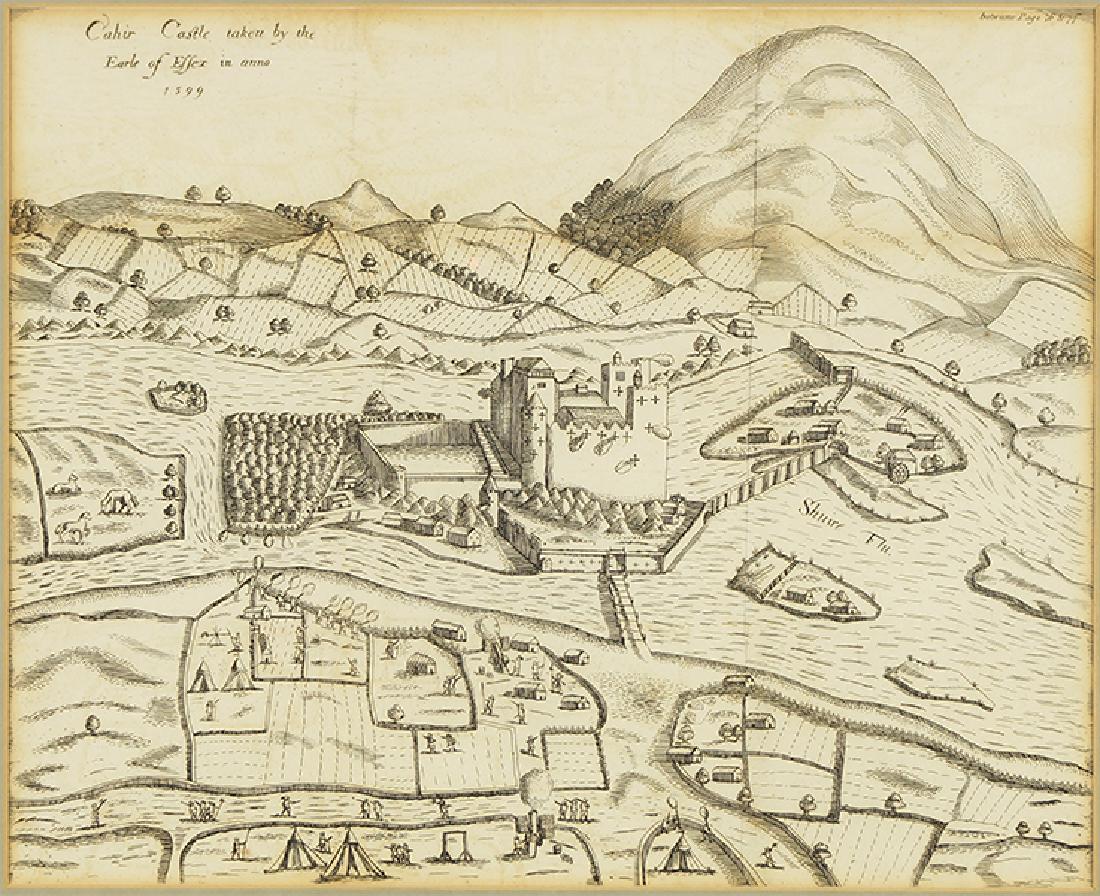 Cahir Castle taken by the
Earle of Essex in anno
1599
betweene Page
Shuire
Flu.